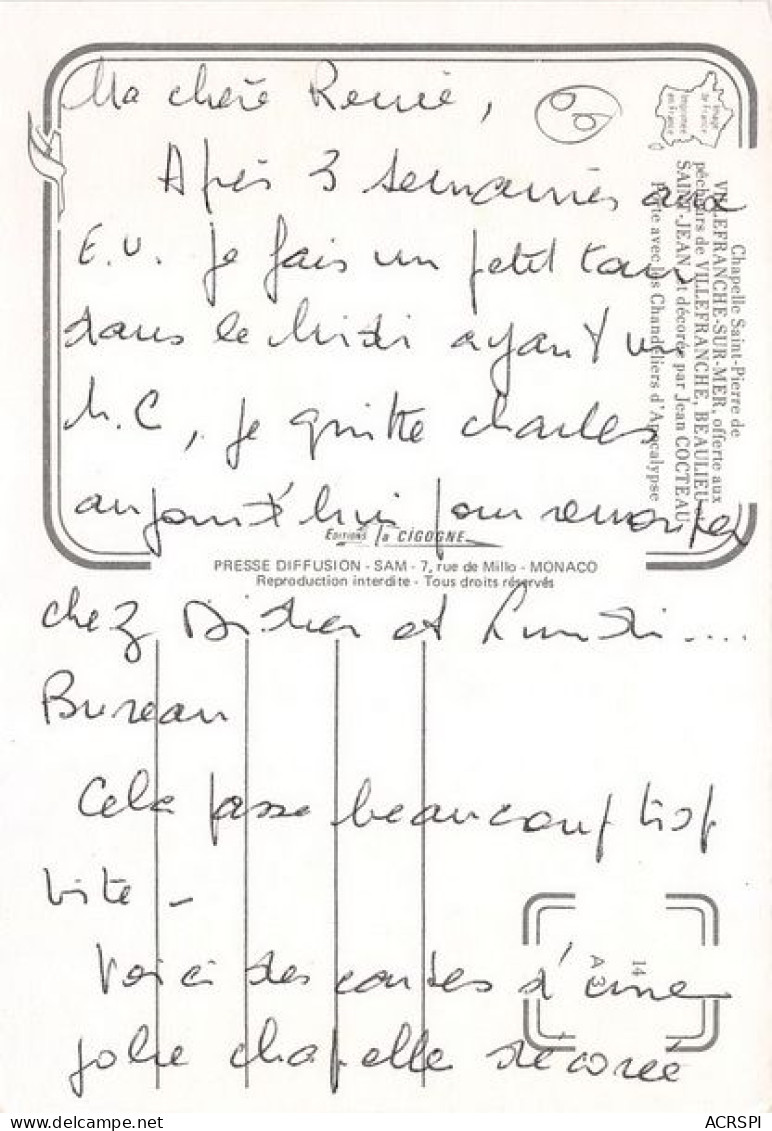 Ma chère Renée,
Après 3 semaines aux
E.U. je fais un petit tour
dans le Midi ayant un
M.C, je quitte charles
aujourd'hui pour remonter
chez Didier et Lundi....
Bureau
Cela passe beaucoup trop
vite -
Voici des cartes d'une
jolie chapelle décorée
Image
de France
Imprimée
en France
Chapelle Saint-Pierre de
VILLEFRANCHE-SUR-MER, offerte aux
pêcheurs de VILLEFRANCHE, BEAULIEU
SAINT-JEAN et décorée par Jean COCTEAU
Porte avec les Chandeliers d'Apocalypse
EDITIONS la CIGOGNE
PRESSE DIFFUSION - SAM - 7, rue de Millo - MONACO
Reproduction interdite - Tous droits réservés
14
A 3
ACRSPI